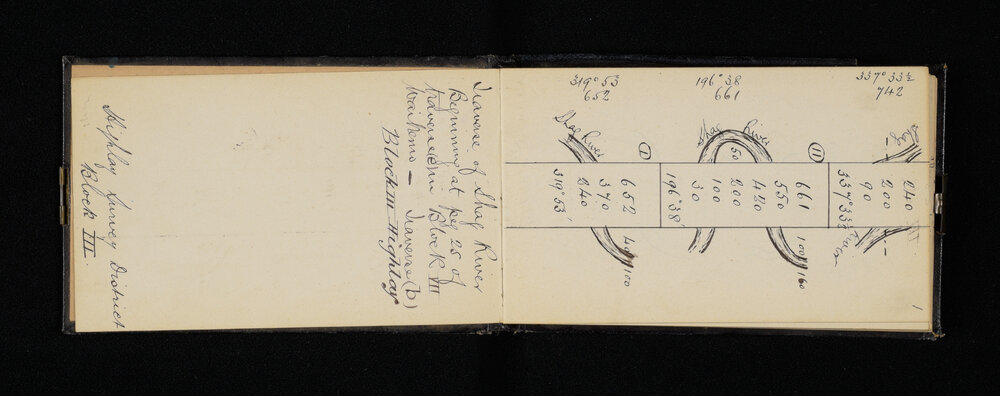 Highlay Survey District
Block III.
Traverse of Shag River
Beginning at peg 25 of
traverse (e) in Block VIII
Waihemo — Traverse (b)
Block III Highlay
319° 53
652
196° 38
661
337° 33½
742
Shag River
Shag River
Shag
I
II
652
370
240
319° 53'
40
100
50
661
550
420
200
100
30
196° 38'
100
160
240
200
90
337° 33½
1